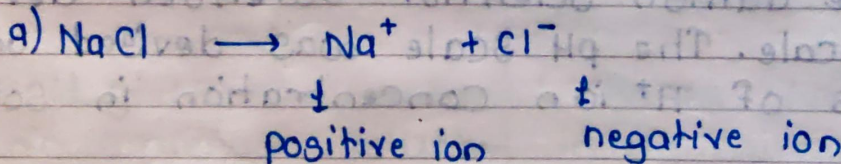 a) NaCl ⟶ Na⁺ + Cl⁻
↓ ↓
positive ion negative ion